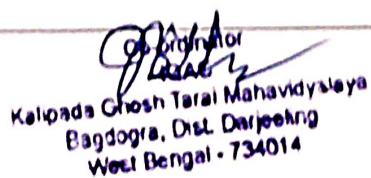 Co-ordinator
Kalipada Ghosh Tarai Mahavidyalaya
Bagdogra, Dist. Darjeeling
West Bengal - 734014